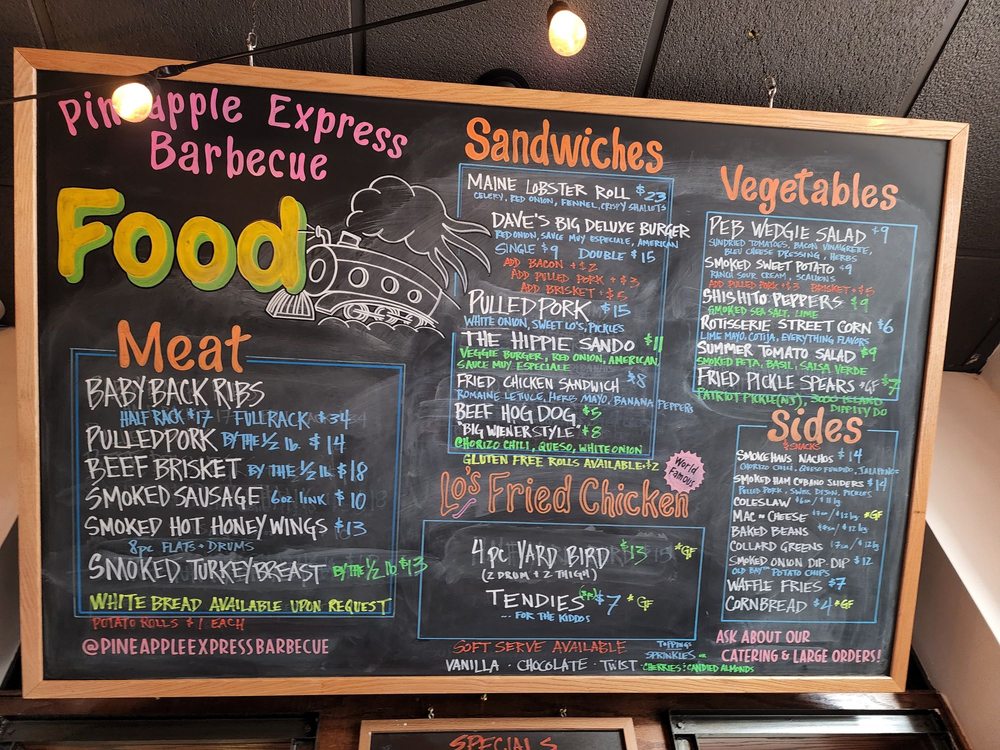 Pineapple Express
Barbecue
Food
Meat
BABY BACK RIBS
HALF RACK $17 FULL RACK $34
PULLED PORK BY THE ½ lb. $14
BEEF BRISKET BY THE ½ lb $18
SMOKED SAUSAGE 6oz LINK $10
SMOKED HOT HONEY WINGS $13
8pc FLATS + DRUMS
SMOKED TURKEY BREAST BY THE ½ lb $13
WHITE BREAD AVAILABLE UPON REQUEST
POTATO ROLLS $1 EACH
@PINEAPPLEEXPRESSBARBECUE
Sandwiches
MAINE LOBSTER ROLL $23
CELERY, RED ONION, FENNEL, CRISPY SHALLOTS
DAVE'S BIG DELUXE BURGER
RED ONION, SAUCE MUY ESPECIALE, AMERICAN
SINGLE $9 DOUBLE $15
ADD BACON + $2
ADD PULLED PORK + $3
ADD BRISKET + $5
PULLED PORK $15
WHITE ONION, SWEET LO'S, PICKLES
THE HIPPIE SANDO $11
VEGGIE BURGER, RED ONION, AMERICAN,
SAUCE MUY ESPECIALE
FRIED CHICKEN SANDWICH $8
ROMAINE LETTUCE, HERB MAYO, BANANA PEPPERS
BEEF HOG DOG $5
"BIG WIENER STYLE" $8
CHORIZO CHILI, QUESO, WHITE ONION
GLUTEN FREE ROLLS AVAILABLE +$2
World Famous
Lo's Fried Chicken
4 pc YARD BIRD $13 *GF
(2 DRUM + 2 THIGH)
TENDIES $7 *GF
... FOR THE KIDDOS
SOFT SERVE AVAILABLE
VANILLA · CHOCOLATE · TWIST
TOPPINGS
SPRINKLES
CHERRIES CANDIED ALMONDS
Vegetables
PEB WEDGIE SALAD $9
SUNDRIED TOMATOES, BACON VINAIGRETTE,
BLEU CHEESE DRESSING, HERBS
SMOKED SWEET POTATO $9
RANCH SOUR CREAM, SCALLIONS
ADD PULLED PORK +$3 BRISKET +$5
SHISHITO PEPPERS $9
SMOKED SEA SALT, LIME
ROTISSERIE STREET CORN $6
LIME MAYO, COTIJA, EVERYTHING FLAVORS
SUMMER TOMATO SALAD $9
SMOKED FETA, BASIL, SALSA VERDE
FRIED PICKLE SPEARS *GF $7
PATRIOT PICKLE (NJ), 3000 ISLAND
DIPPITY DO
Sides
& SNACKS
SMOKEHAUS NACHOS $14
CHORIZO CHILI, QUESO FUNDIDO, JALAPEÑOS
SMOKED HAM CUBANO SLIDERS $14
PULLED PORK, SWISS, DIJON, PICKLES
COLESLAW
MAC + CHEESE *GF
BAKED BEANS
COLLARD GREENS
SMOKED ONION DIP-DIP $12
OLD BAY POTATO CHIPS
WAFFLE FRIES $7
CORNBREAD $4 *GF
ASK ABOUT OUR
CATERING & LARGE ORDERS!
SPECIALS